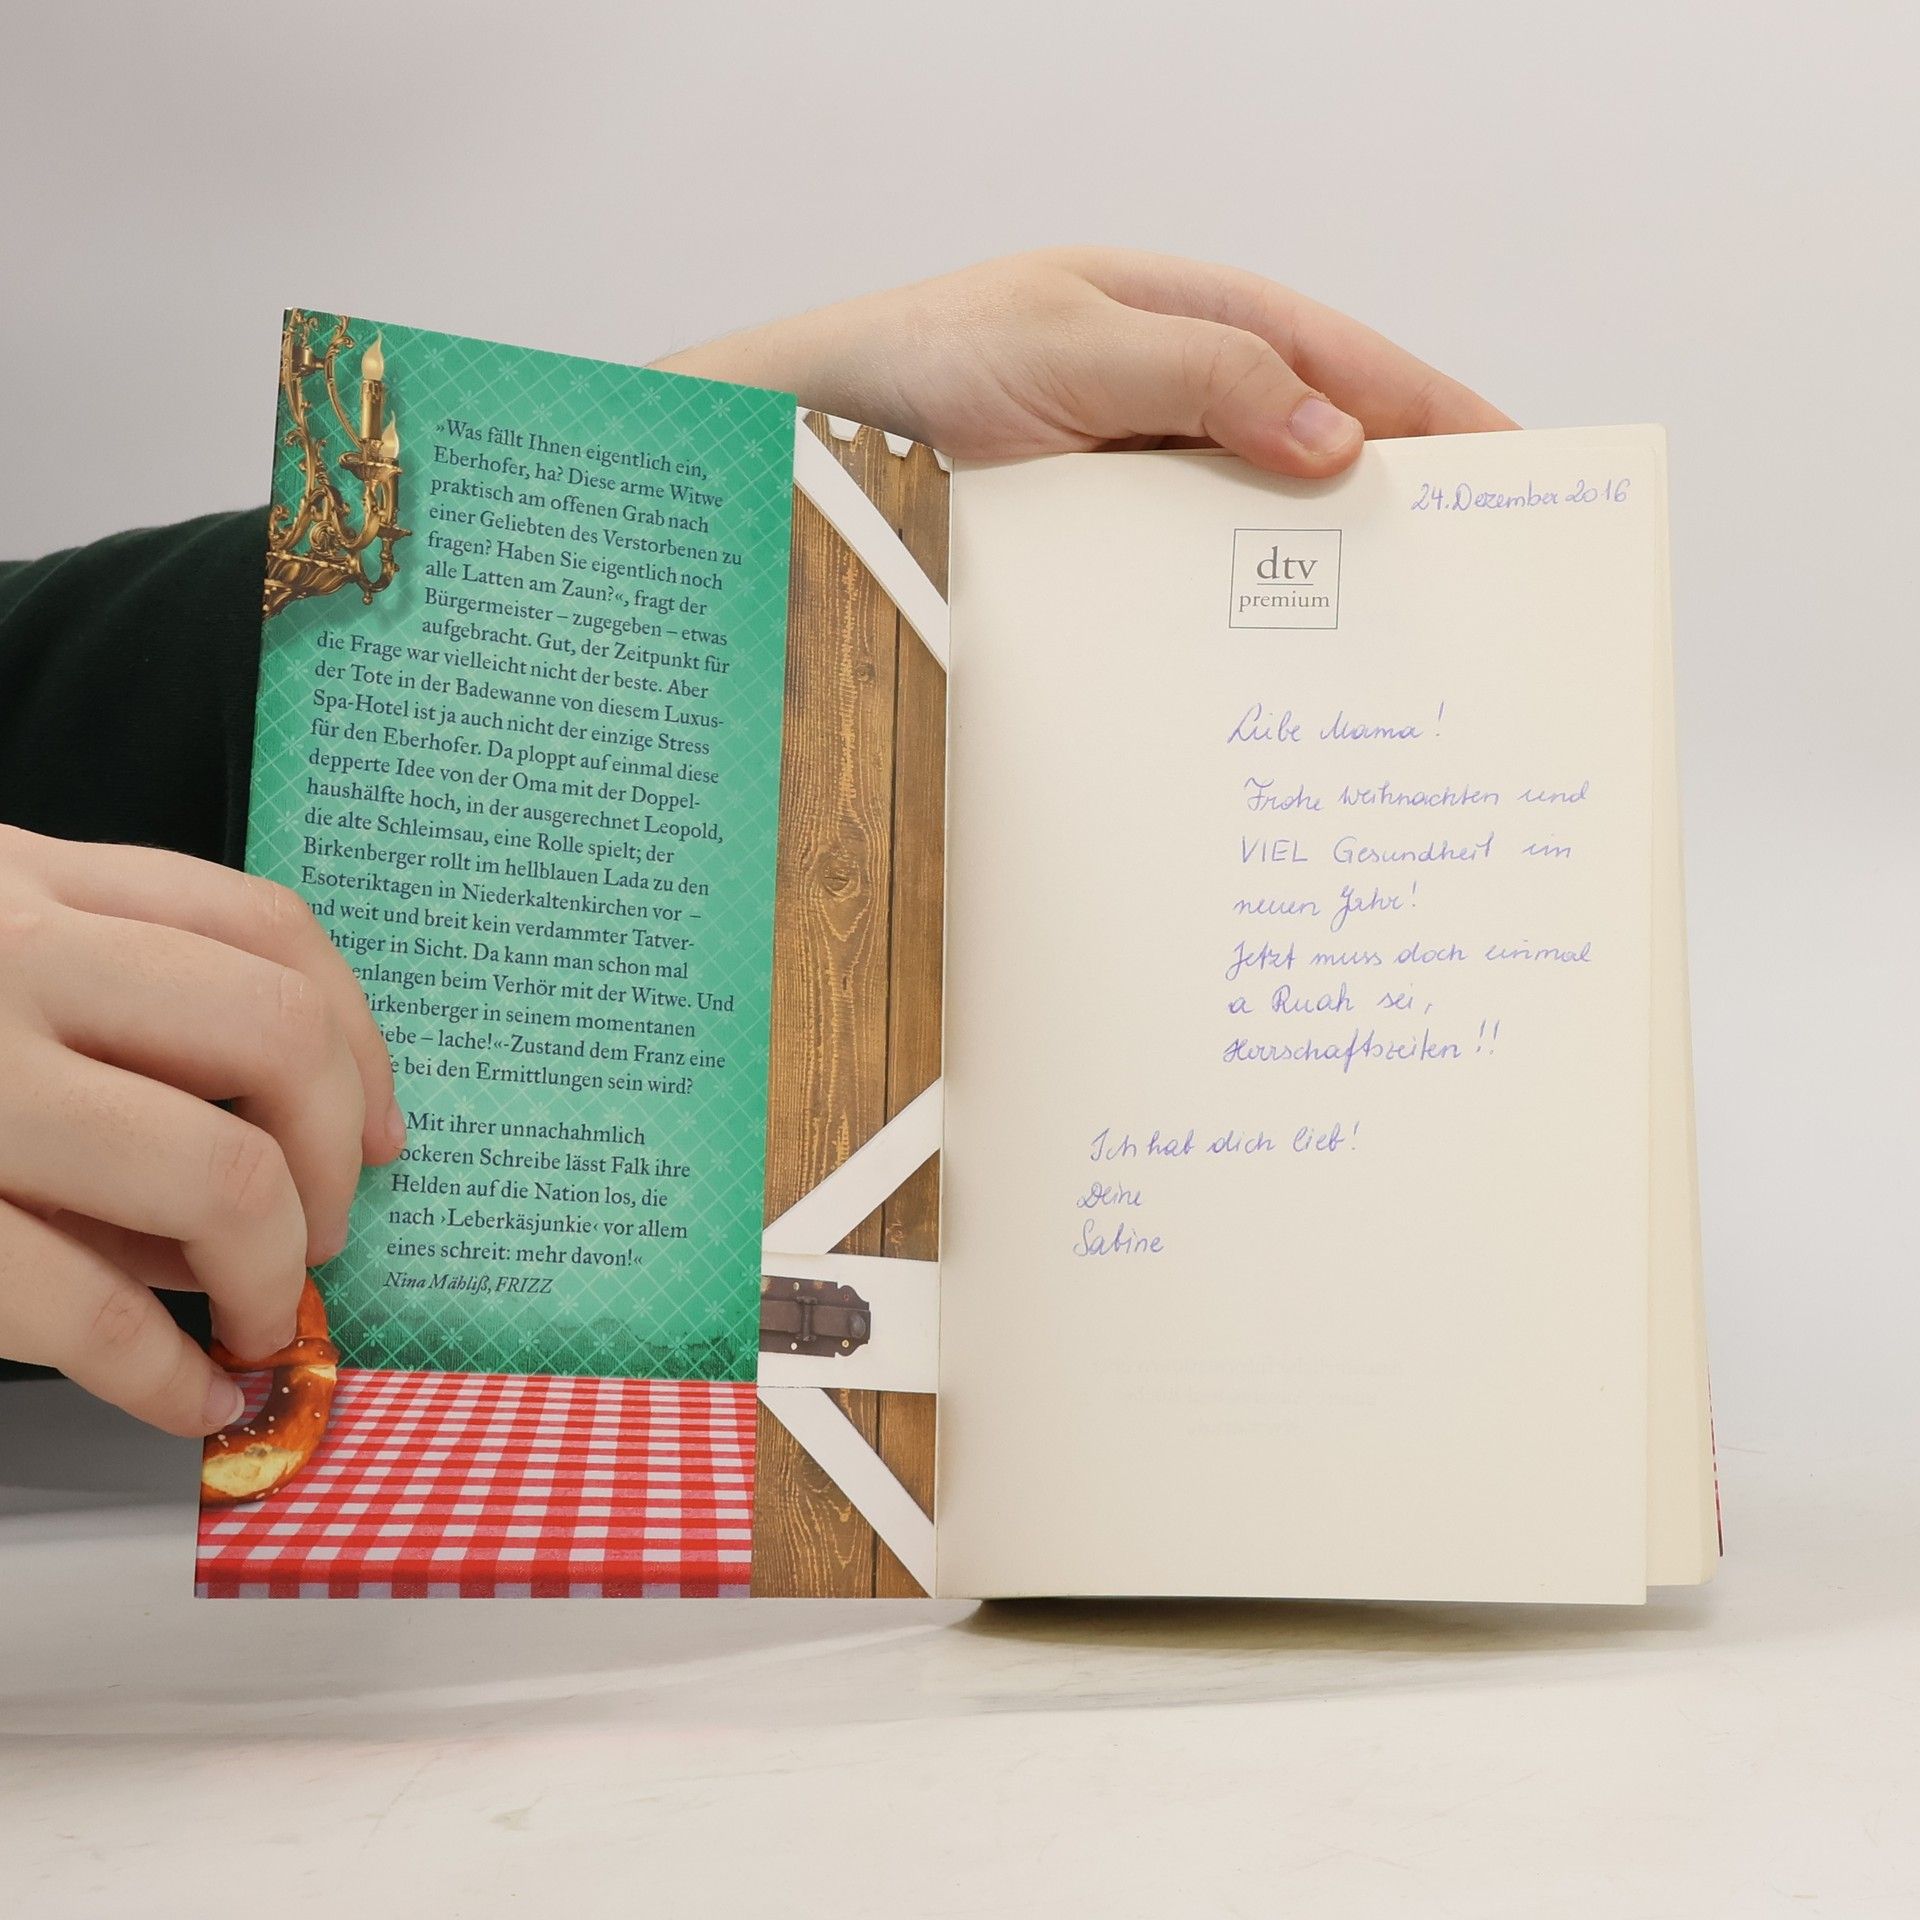 »Was fällt Ihnen eigentlich ein,
Eberhofer, ha? Diese arme Witwe
praktisch am offenen Grab nach
einer Geliebten des Verstorbenen zu
fragen? Haben Sie eigentlich noch
alle Latten am Zaun?«, fragt der
Bürgermeister – zugegeben – etwas
aufgebracht. Gut, der Zeitpunkt für
die Frage war vielleicht nicht der beste. Aber
der Tote in der Badewanne von diesem Luxus-
Spa-Hotel ist ja auch nicht der einzige Stress
für den Eberhofer. Da ploppt auf einmal diese
depperte Idee von der Oma mit der Doppel-
haushälfte hoch, in der ausgerechnet Leopold,
die alte Schleimsau, eine Rolle spielt; der
Birkenberger rollt im hellblauen Lada zu den
Esoteriktagen in Niederkaltenkirchen vor –
und weit und breit kein verdammter Tatver-
htiger in Sicht. Da kann man schon mal
enlangen beim Verhör mit der Witwe. Und
Birkenberger in seinem momentanen
iebe – lache!«-Zustand dem Franz eine
e bei den Ermittlungen sein wird?
Mit ihrer unnachahmlich
lockeren Schreibe lässt Falk ihre
Helden auf die Nation los, die
nach ›Leberkäsjunkie‹ vor allem
eines schreit: mehr davon!«
Nina Mähliß, FRIZZ
24. Dezember 2016
dtv
premium
Liebe Mama!
Frohe Weihnachten und
VIEL Gesundheit im
neuen Jahr!
Jetzt muss doch einmal
a Ruah sei,
Herrschaftszeiten!!
Ich hab dich lieb!
Deine
Sabine